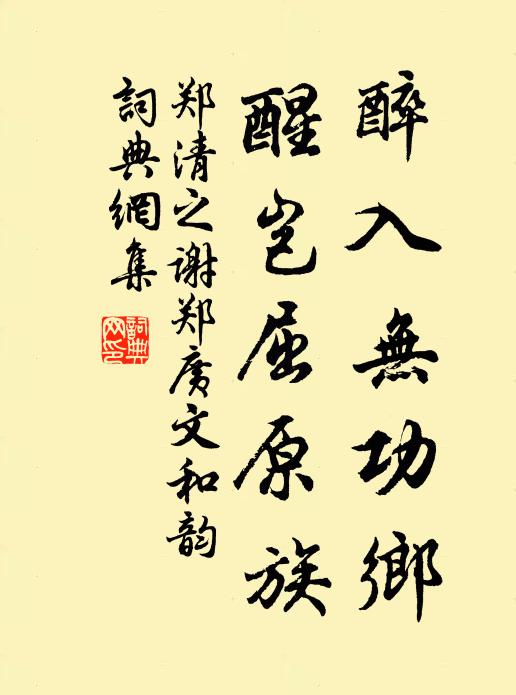 醉入無功鄉
醒岂屈原族
郑清之谢郑广文和韵
詞典網集
詞典
网印